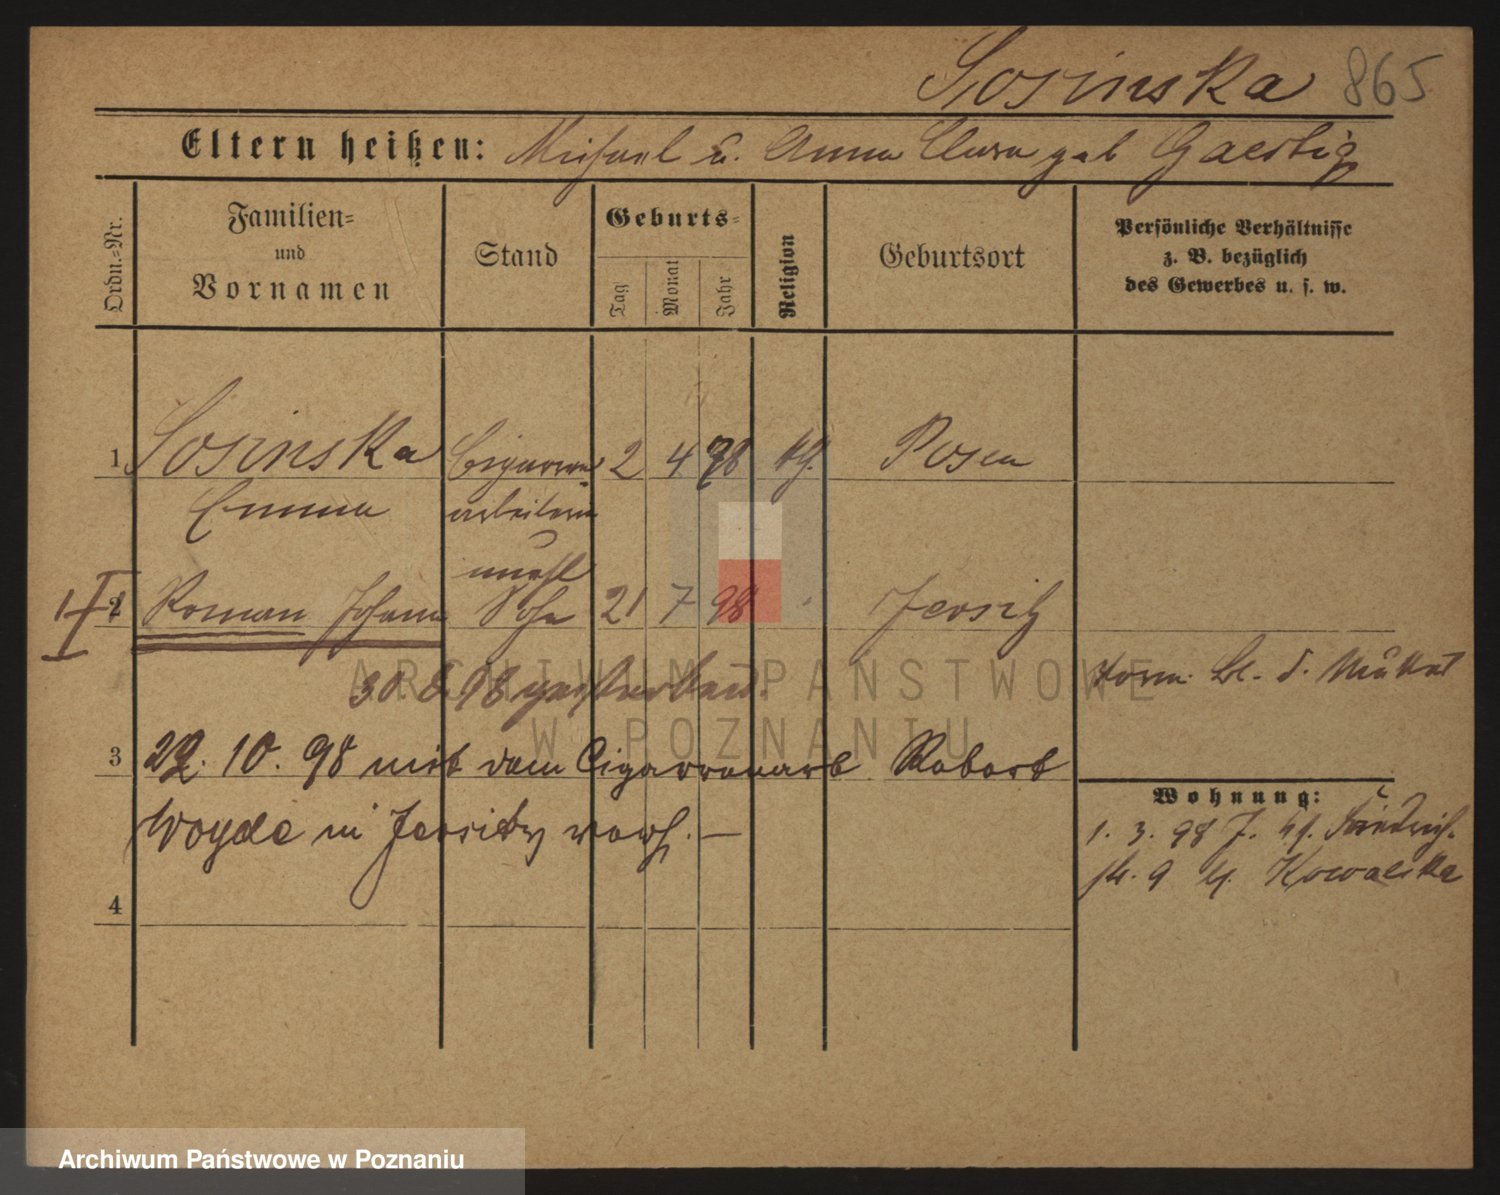 Sosinska 865
Eltern heißen: Michael u. Anna Clara geb Gaertig
Ordn.-Nr.
Familien-
und
Vornamen
Stand
Geburts-
Tag
Monat
Jahr
Religion
Geburtsort
Persönliche Verhältnisse
z. B. bezüglich
des Gewerbes u. s. w.
1 Sosinska Cigarren 2 4 78 kg. Posen
Emma arbeiterin
unehl
2 Roman Johann Sohn 21 7 98 Jersitz
30. 8. 98 gestorben.
3 22. 10. 98 mit dem Cigarrenarb Robert
Woyde in Jersitz verh. —
4
Wohnung:
1. 3. 98 J. Friedrich-
str. 9 Kowalska
ARCHIWUM PAŃSTWOWE
W POZNANIU
Archiwum Państwowe w Poznaniu